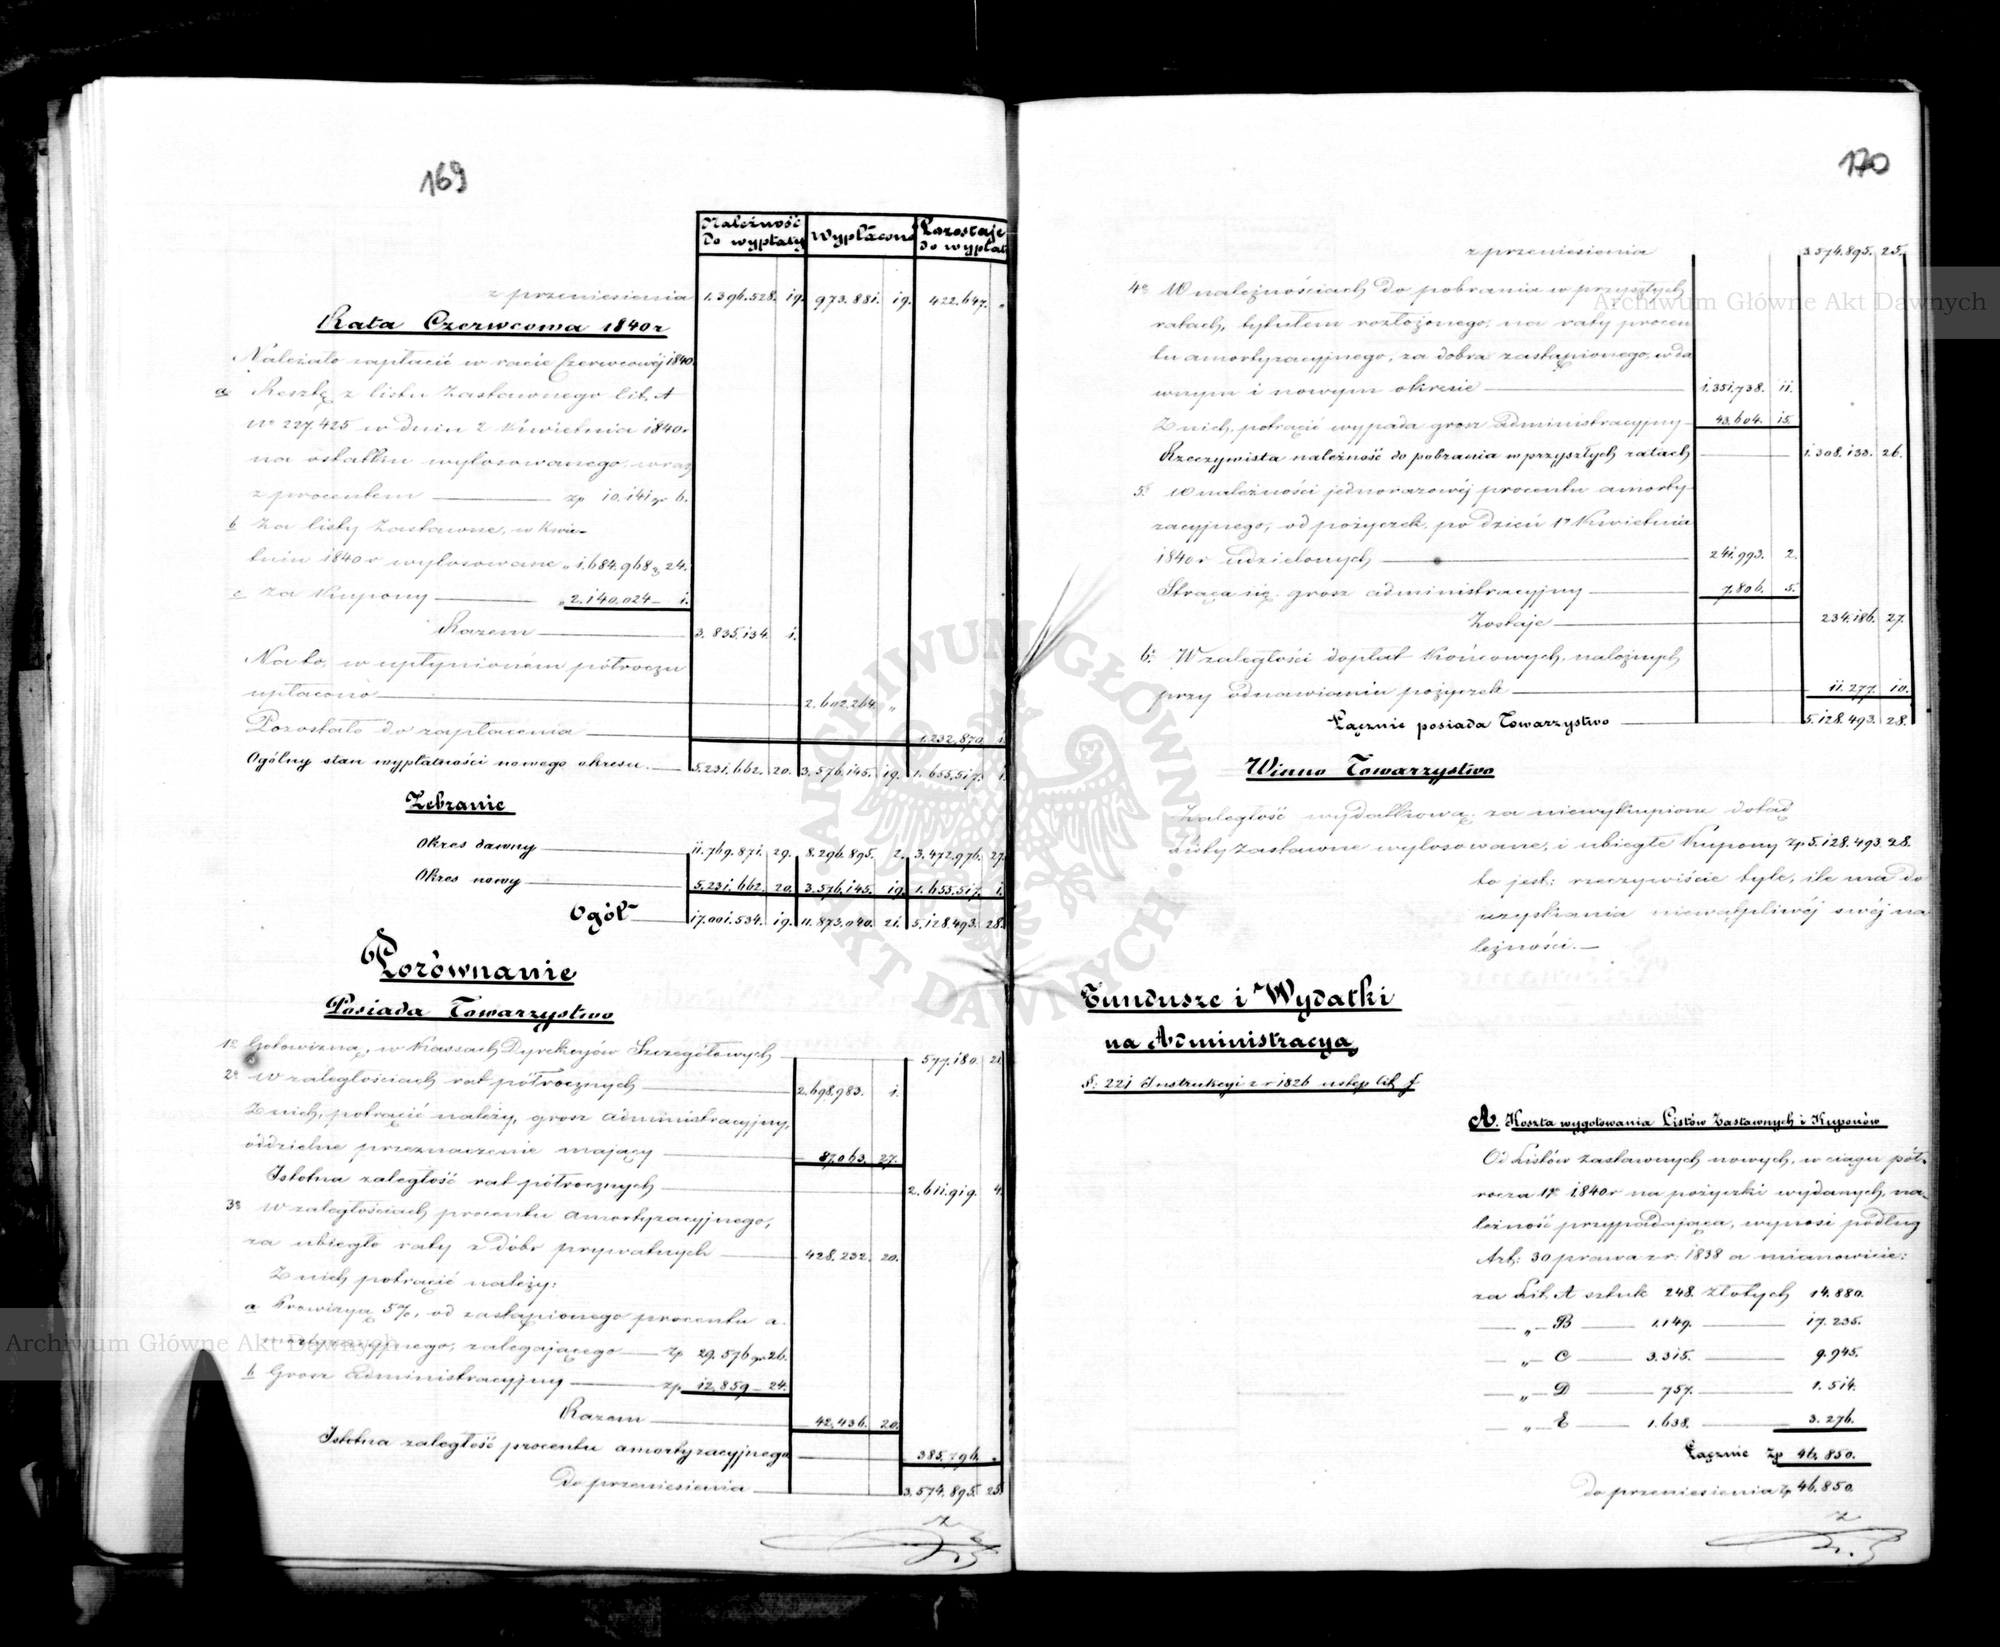 169
Należność do wypłaty | Wypłacono | Pozostaje do wypłaty
z przeniesienia 1.396.528. 19. 973.881. 19. 422.647. „
Rata Czerwcowa 1840 r
Należało zapłacić w racie Czerwcowéj 1840
a Resztę z listu Zastawnego lit. A
No 227.425 w dniu 2 Kwietnia 1840 r
na ostatku wylosowanego, wraz
z procentem zp 10.141 gr 6.
b Za listy Zastawne, w Kwie-
tniu 1840 r wylosowane „ 1.684.968 „ 24.
c Za Kupony „ 2.140.024 — 1.
Razem 3.835.134. 1.
Na to, w upłynioném półroczu
upłacono 2.602.264. „
Pozostało do zapłacenia 1.232.870 1.
Ogólny stan wypłatności nowego okresu 5.231.662. 20. 3.576.145. 19. 1.655.517. 1.
Zebranie
Okres dawny 11.769.871. 29. 8.296.895. 2. 3.472.976. 27.
Okres nowy 5.231.662. 20. 3.576.145. 19. 1.655.517. 1.
Ogół 17.001.534. 19. 11.873.040. 21. 5.128.493. 28.
Porównanie
Posiada Towarzystwo
1o Gotowizną, w Kassach Dyrekcyów Szczegółowych 577.180. 21
2o W zaległościach rat półrocznych 2.698.983. 1.
Z nich, potrącić należy, grosz administracyjny,
oddzielne przeznaczenie mający 87.063. 27.
Istotna zaległość rat półrocznych 2.611.919. 4.
3o W zaległościach procentu amortyzacyjnego,
za ubiegłe raty z dóbr prywatnych 428.232. 20.
Z nich potrącić należy:
a Prowizya 5%, od zastąpionego procentu a-
mortyzacyjnego, zalegającego zp 29.576 gr 26.
b Grosz administracyjny zp 12.859 — 24.
Razem 42.436. 20.
Istotna zaległość procentu amortyzacyjnego 385.796. „
Do przeniesienia 3.574.895. 25.
170
z przeniesienia 3.574.895. 25.
4o W należnościach do pobrania w przyszłych
ratach, tytułem rozłożonego, na raty procen
tu amortyzacyjnego, za dobra zastąpionego, w da
wnym i nowym okresie 1.351.738. 11.
Z nich, potrącić wypada grosz administracyjny 43.604. 15.
Rzeczywista należność do pobrania w przyszłych ratach 1.308.133. 26.
5o W należności jednorazowéj procentu amorty-
zacyjnego, od pożyczek, po dzień 1o Kwietnia
1840 r udzielonych 241.993. 2.
Strąca się grosz administracyjny 7.806. 5.
Zostaje 234.186. 27.
6o W zaległości dopłat Końcowych, należnych
przy odnawianiu pożyczek 11.277. 10.
Łącznie posiada Towarzystwo 5.128.493. 28.
Winno Towarzystwo
Zaległość wydatkową za niewykupione dotąd
Listy Zastawne wylosowane, i ubiegłe Kupony zp 5.128.493. 28.
to jest: rzeczywiście tyle, ile ma do
uzyskania niewątpliwéj swéj na
leżności.—
Fundusze i Wydatki
na Administracyą,
§: 221 Instrukcyi z r 1826 ustęp lit. f
A. Koszta wygotowania Listów Zastawnych i Kuponów
Od Listów Zastawnych nowych, w ciągu pół-
rocza 1go 1840 r na pożyczki wydanych, na-
leżność przypadająca, wynosi podług
Art: 30 prawa z r: 1838 a mianowicie:
za Lit. A sztuk 248. złotych 14.880.
— „ — B — 1.149. — 17.235.
— „ — C — 3.315. — 9.945.
— „ — D — 757. — 1.514.
— „ — E — 1.638. — 3.276.
Łącznie zp 46.850.
Do przeniesienia zp 46.850.
Archiwum Główne Akt Dawnych
Archiwum Główne Akt Dawnych
ARCHIWUM GŁÓWNE AKT DAWNYCH